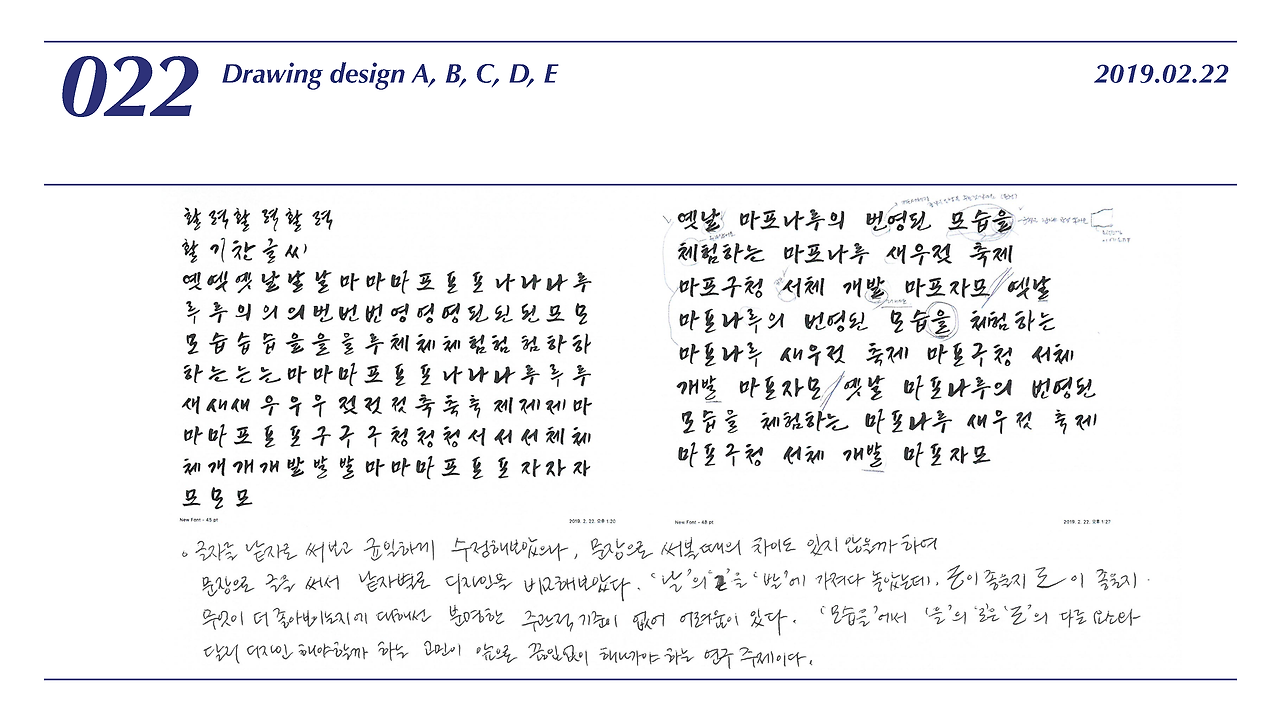 022
Drawing design A, B, C, D, E
2019.02.22
활력활력활력
활기찬글씨
옛옛옛날날날마마마포포포나나나루
루루의의의번번번영영영된된된모모
모습습습을을을루체체체험험험하하
하는는는마마마포포포나나나루루루
새새새우우우젓젓젓축축축제제제마
마마포포포구구구청청청서서서체체
체개개개발발발마마마포포포자자자
모모모
New Font - 45 pt
2019. 2. 22. 오후 1:20
옛날 마포나루의 번영된 모습을
체험하는 마포나루 새우젓 축제
마포구청 서체 개발 마포자모 옛날
마포나루의 번영된 모습을 체험하는
마포나루 새우젓 축제 마포구청 서체
개발 마포자모 옛날 마포나루의 번영된
모습을 체험하는 마포나루 새우젓 축제
마포구청 서체 개발 마포자모
New Font - 48 pt
2019. 2. 22. 오후 1:27
글자를 낱자로 써보고 균일하게 수정해보았으나, 문장으로 써봤을때의 차이도 있지 않을까 하여
문장으로 글을 써서 낱자별로 디자인을 비교해보았다. '날'의 'ㄹ'을 '발'에 가져다 놓았는데, 이 좋을지 이 좋을지
무엇이 더 좋아보이는지에 대해선 분명한 주관적 기준이 없어 어려움이 있다. '모습을'에서 '을'의 'ㄹ'은 '로'의 다른 요소와
달리 디자인 해야할까 하는 고민이 앞으로 끊임없이 해나가야 하는 연구 주제이다.